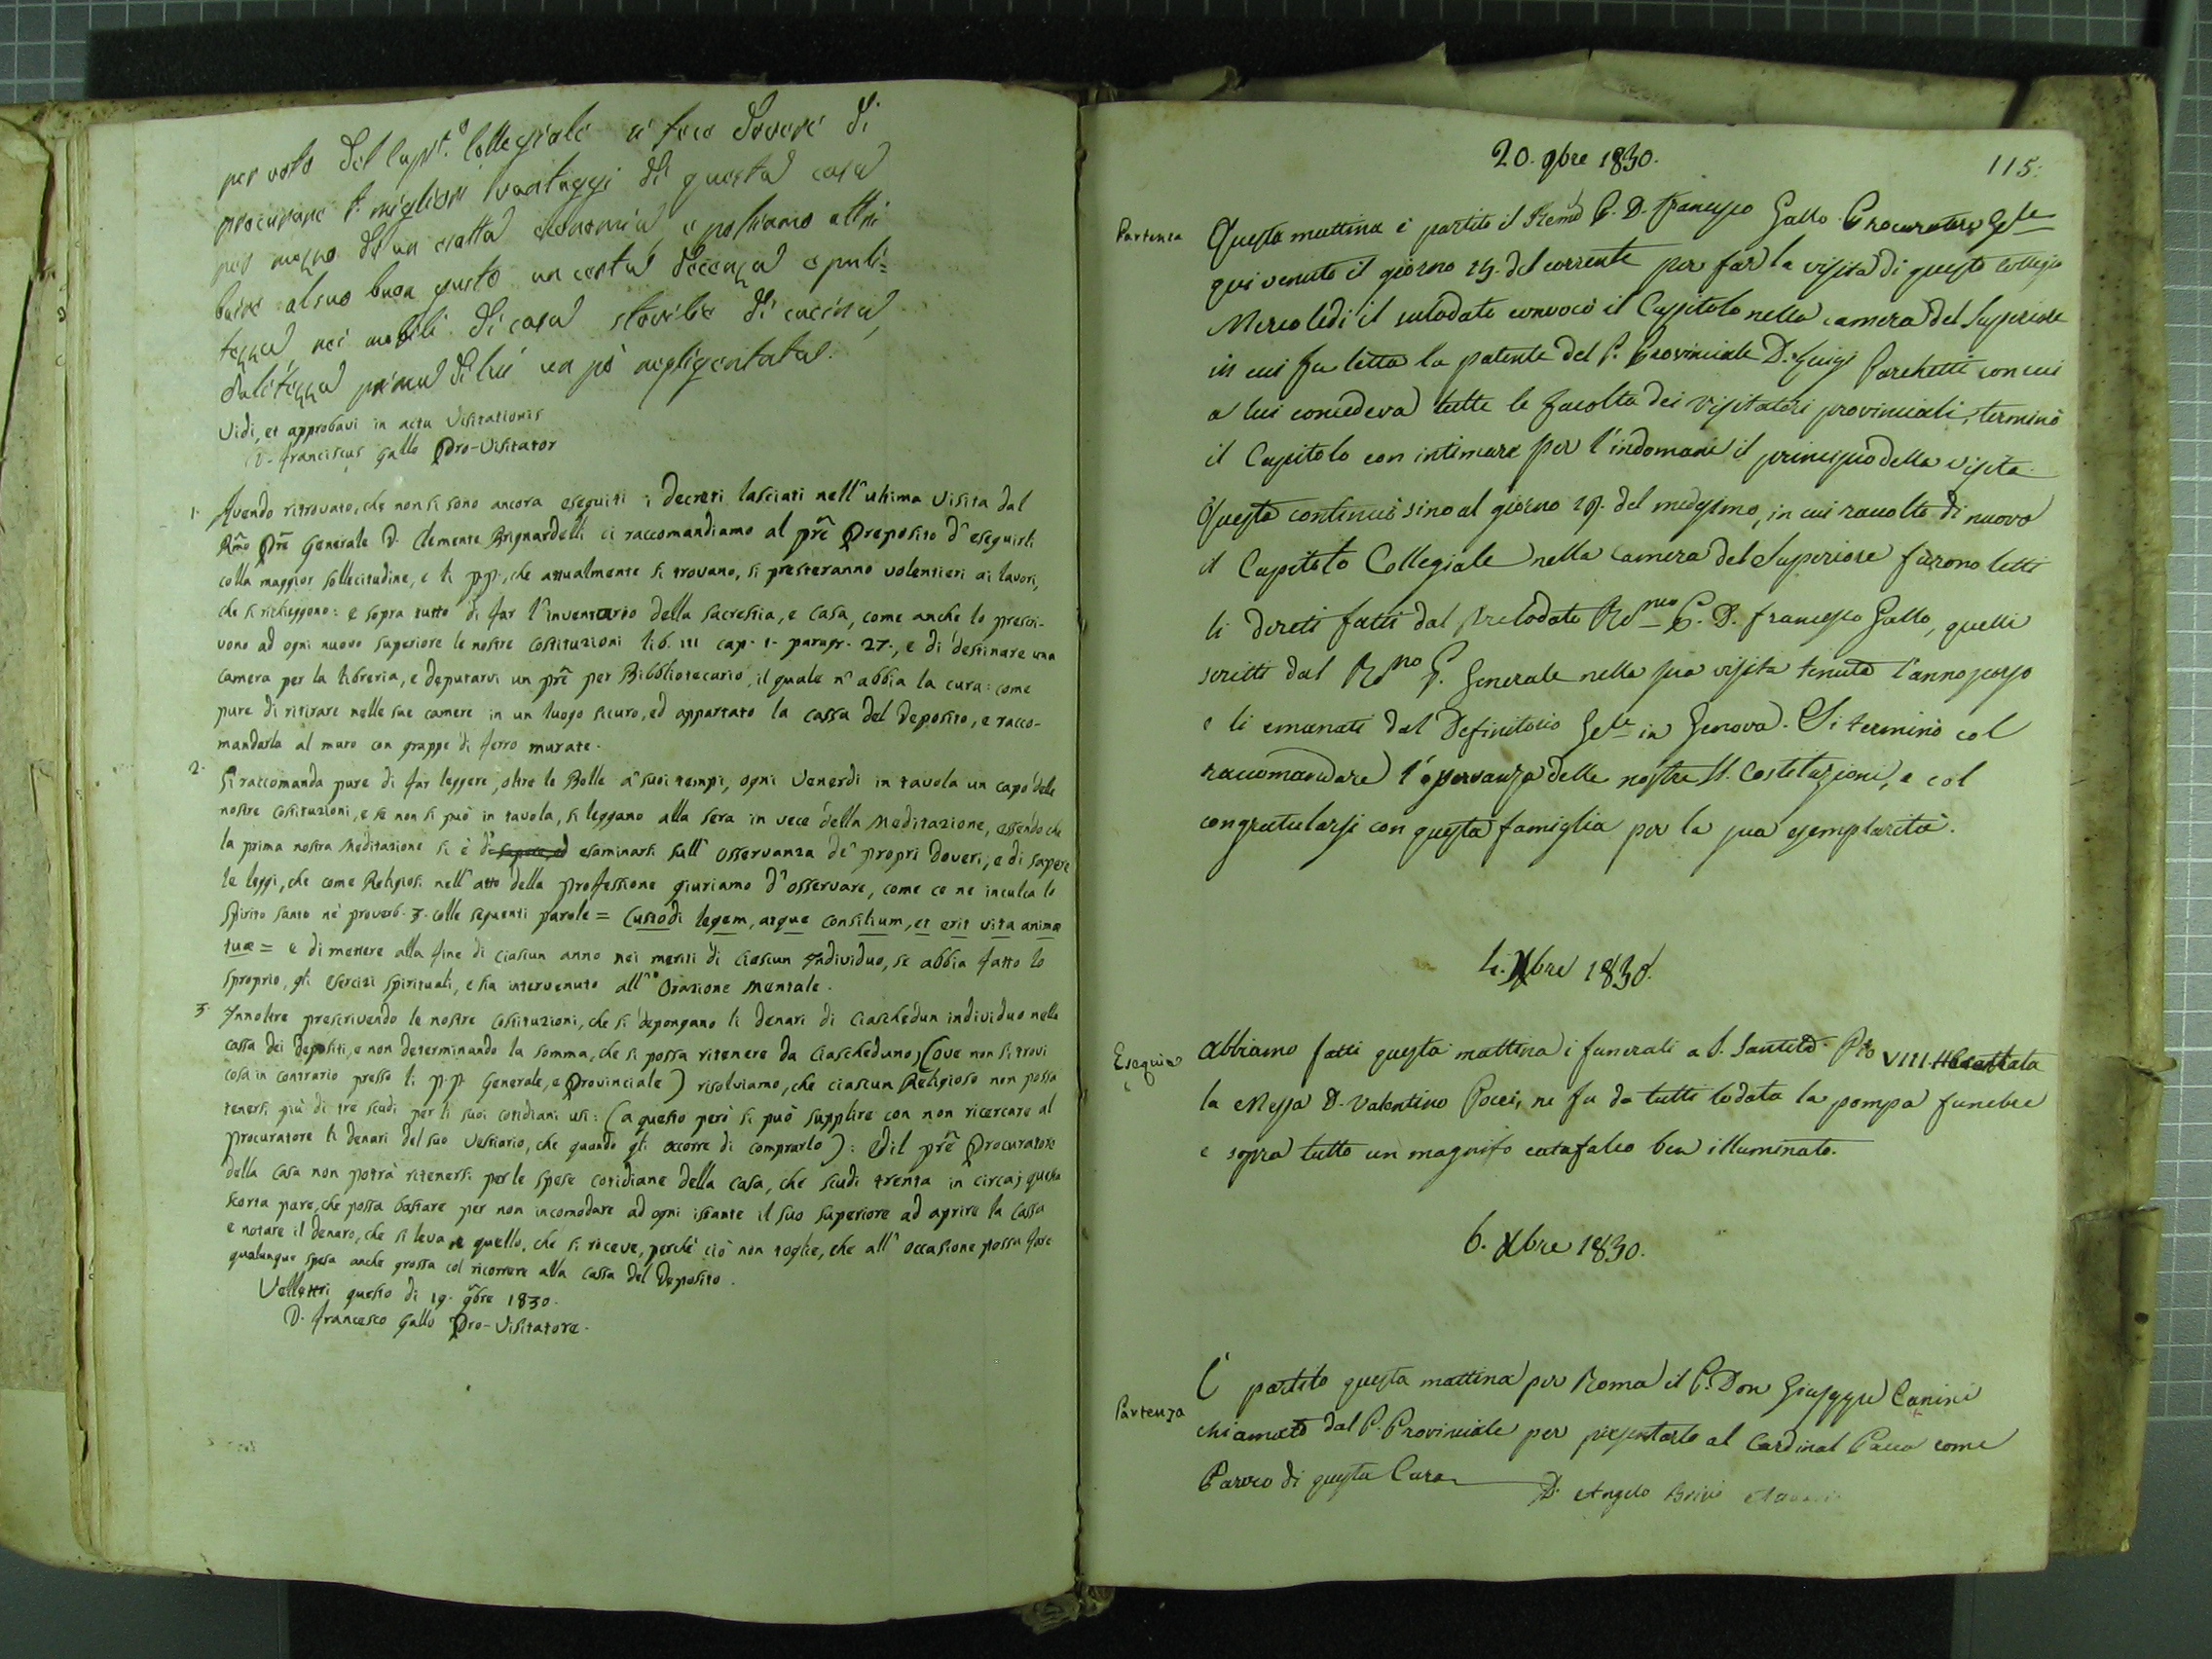 per voto del Capit.o Collegiale si fece dovere di
procurare i migliori vantaggi di questa casa
per mezzo di un esatta economia, e possiamo attri
buire al suo buon gusto una certa decenza e puli=
tezza nei mobili di casa stovilie di cucina,
prima di lui un pò negligentata.
Vidi, et approbavi in actu Visitationis
D. Franciscus Gallo Pro-Visitator
1. Avendo ritrovato, che non si sono ancora eseguiti i decreti lasciati nell'ultima Visita dal
Rmo Prē Generale D. Clemente Brignardelli ci raccomandiamo al prē Preposito d'eseguirli
colla maggior sollecitudine, e li pp., che attualmente si trovano, si presteranno volentieri ai lavori,
che si richieggono: e sopra tutto di far l'inventario della sacrestia, e casa, come anche lo prescri-
vono ad ogni nuovo superiore le nostre costituzioni lib. III cap. 1. paragr. 27., e di destinare una
camera per la libreria, e deputarvi un prē per Bibbliotecario, il quale n'abbia la cura: come
pure di ritirare nelle sue camere in un luogo sicuro, ed appartato la cassa del Deposito, e racco-
mandarla al muro con grappe di ferro murate.
2. Si raccomanda pure di far leggere, oltre le Bolle a' suoi tempi, ogni Venerdi in tavola un capo delle
nostre costituzioni, e se non si può in tavola, si leggano alla sera in vece della Meditazione, essendo che
la prima nostra Meditazione si è di sapere, ed esaminarsi sull'osservanza de' propri doveri, e di sapere
le leggi, che come Religiosi nell'atto della professione giuriamo d'osservare, come ce ne inculca lo
Spirito Santo nè proverb. 3. colle seguenti parole = Custodi legem, atque consilium, et erit vita animæ
tuæ = e di mettere alla fine di ciascun anno nei meriti di ciascun Individuo, se abbia fatto lo
sproprio, gli esercizi spirituali, e sia intervenuto all'Orazione Mentale.
3. Innoltre prescrivendo le nostre costituzioni, che si depongano li denari di ciaschedun individuo nella
cassa dei depositi, e non determinando la somma, che si possa ritenere da ciascheduno, (ove non si trovi
cosa in contrario presso li pp. Generale, e Provinciale) risolviamo, che ciascun Religioso non possa
tenersi più di tre scudi per li suoi cotidiani usi: (a questo però si può supplire con non ricercare al
procuratore li denari del suo vestiario, che quando gli occorre di comprarlo): Ed il prē Procuratore
della casa non potrà ritenersi per le spese cotidiane della casa, che scudi trenta in circa; questa
scorta pare, che possa bastare per non incomodare ad ogni istante il suo superiore ad aprire la cassa
e notare il denaro, che si leva, e quello, che si riceve, perchè ciò non toglie, che all'occasione possa fare
qualunque spesa anche grossa col ricorrere alla cassa del Deposito.
Velletri questo di 19. 9bre 1830.
D. Francesco Gallo Pro-Visitatore.
115.
20. 9bre 1830.
Partenza
Questa mattina è partito il Remo P. D. Francesco Gallo Procuratore Gle
qui venuto il giorno 15. del corrente per far la visita di questo Collegio
Mercoledi il sulodato convocò il Capitolo nella camera del Superiore
in cui fu letta la patente del P. Provinciale D. Luigi Parchetti con cui
a lui concedeva tutte le facolta dei visitatori provinciali, terminò
il Capitolo con intimare per l'indomani il principio della visita.
Questa continuò sino al giorno 19. del medesimo, in cui raccolto di nuovo
il Capitolo Collegiale nella camera del Superiore furono letti
li dereti fatti dal prelodato Rdmo P. D. Francesco Gallo, quelli
scritti dal Rmo P. Generale nella sua visita tenuta l'anno scorso
e li emanati dal Definitorio Gele in Genova. Si terminò col
raccomandare l'osservanza delle nostre SS. Costituzioni, e col
congratularsi con questa famiglia per la sua esemplarità.
4. Xbre 1830.
Esequie
Abbiamo fatti questa mattina i funerali a S. Santità Pio VIII.
la Messa D. Valentino Pocci, ne fu da tutti lodata la pompa funebre
e sopra tutto un magnifo catafalco ben illuminato.
6. Xbre 1830.
Partenza
È partito questa mattina per Roma il P. Don Giuseppe Canini
chiamato dal P. Provinciale per presentarlo al Cardinal Pacca come
Parroco di questa Cura
D. Angelo Brivio